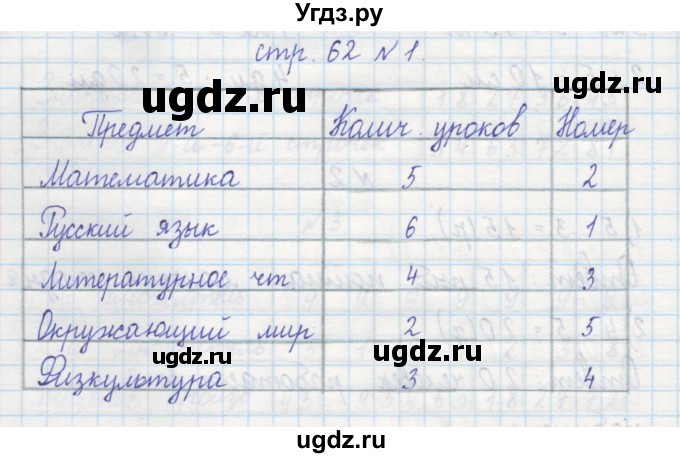 Угдз.ру
стр. 62 № 1.
ugdz.ru ugdz.ru
Предмет Колич. уроков Номер
Математика 5 2
Русский язык 6 1
Литературное чт 4 3
Окружающий мир 2 5
ugdz.ru ugdz.ru
Физкультура 3 4
ugdz.ru